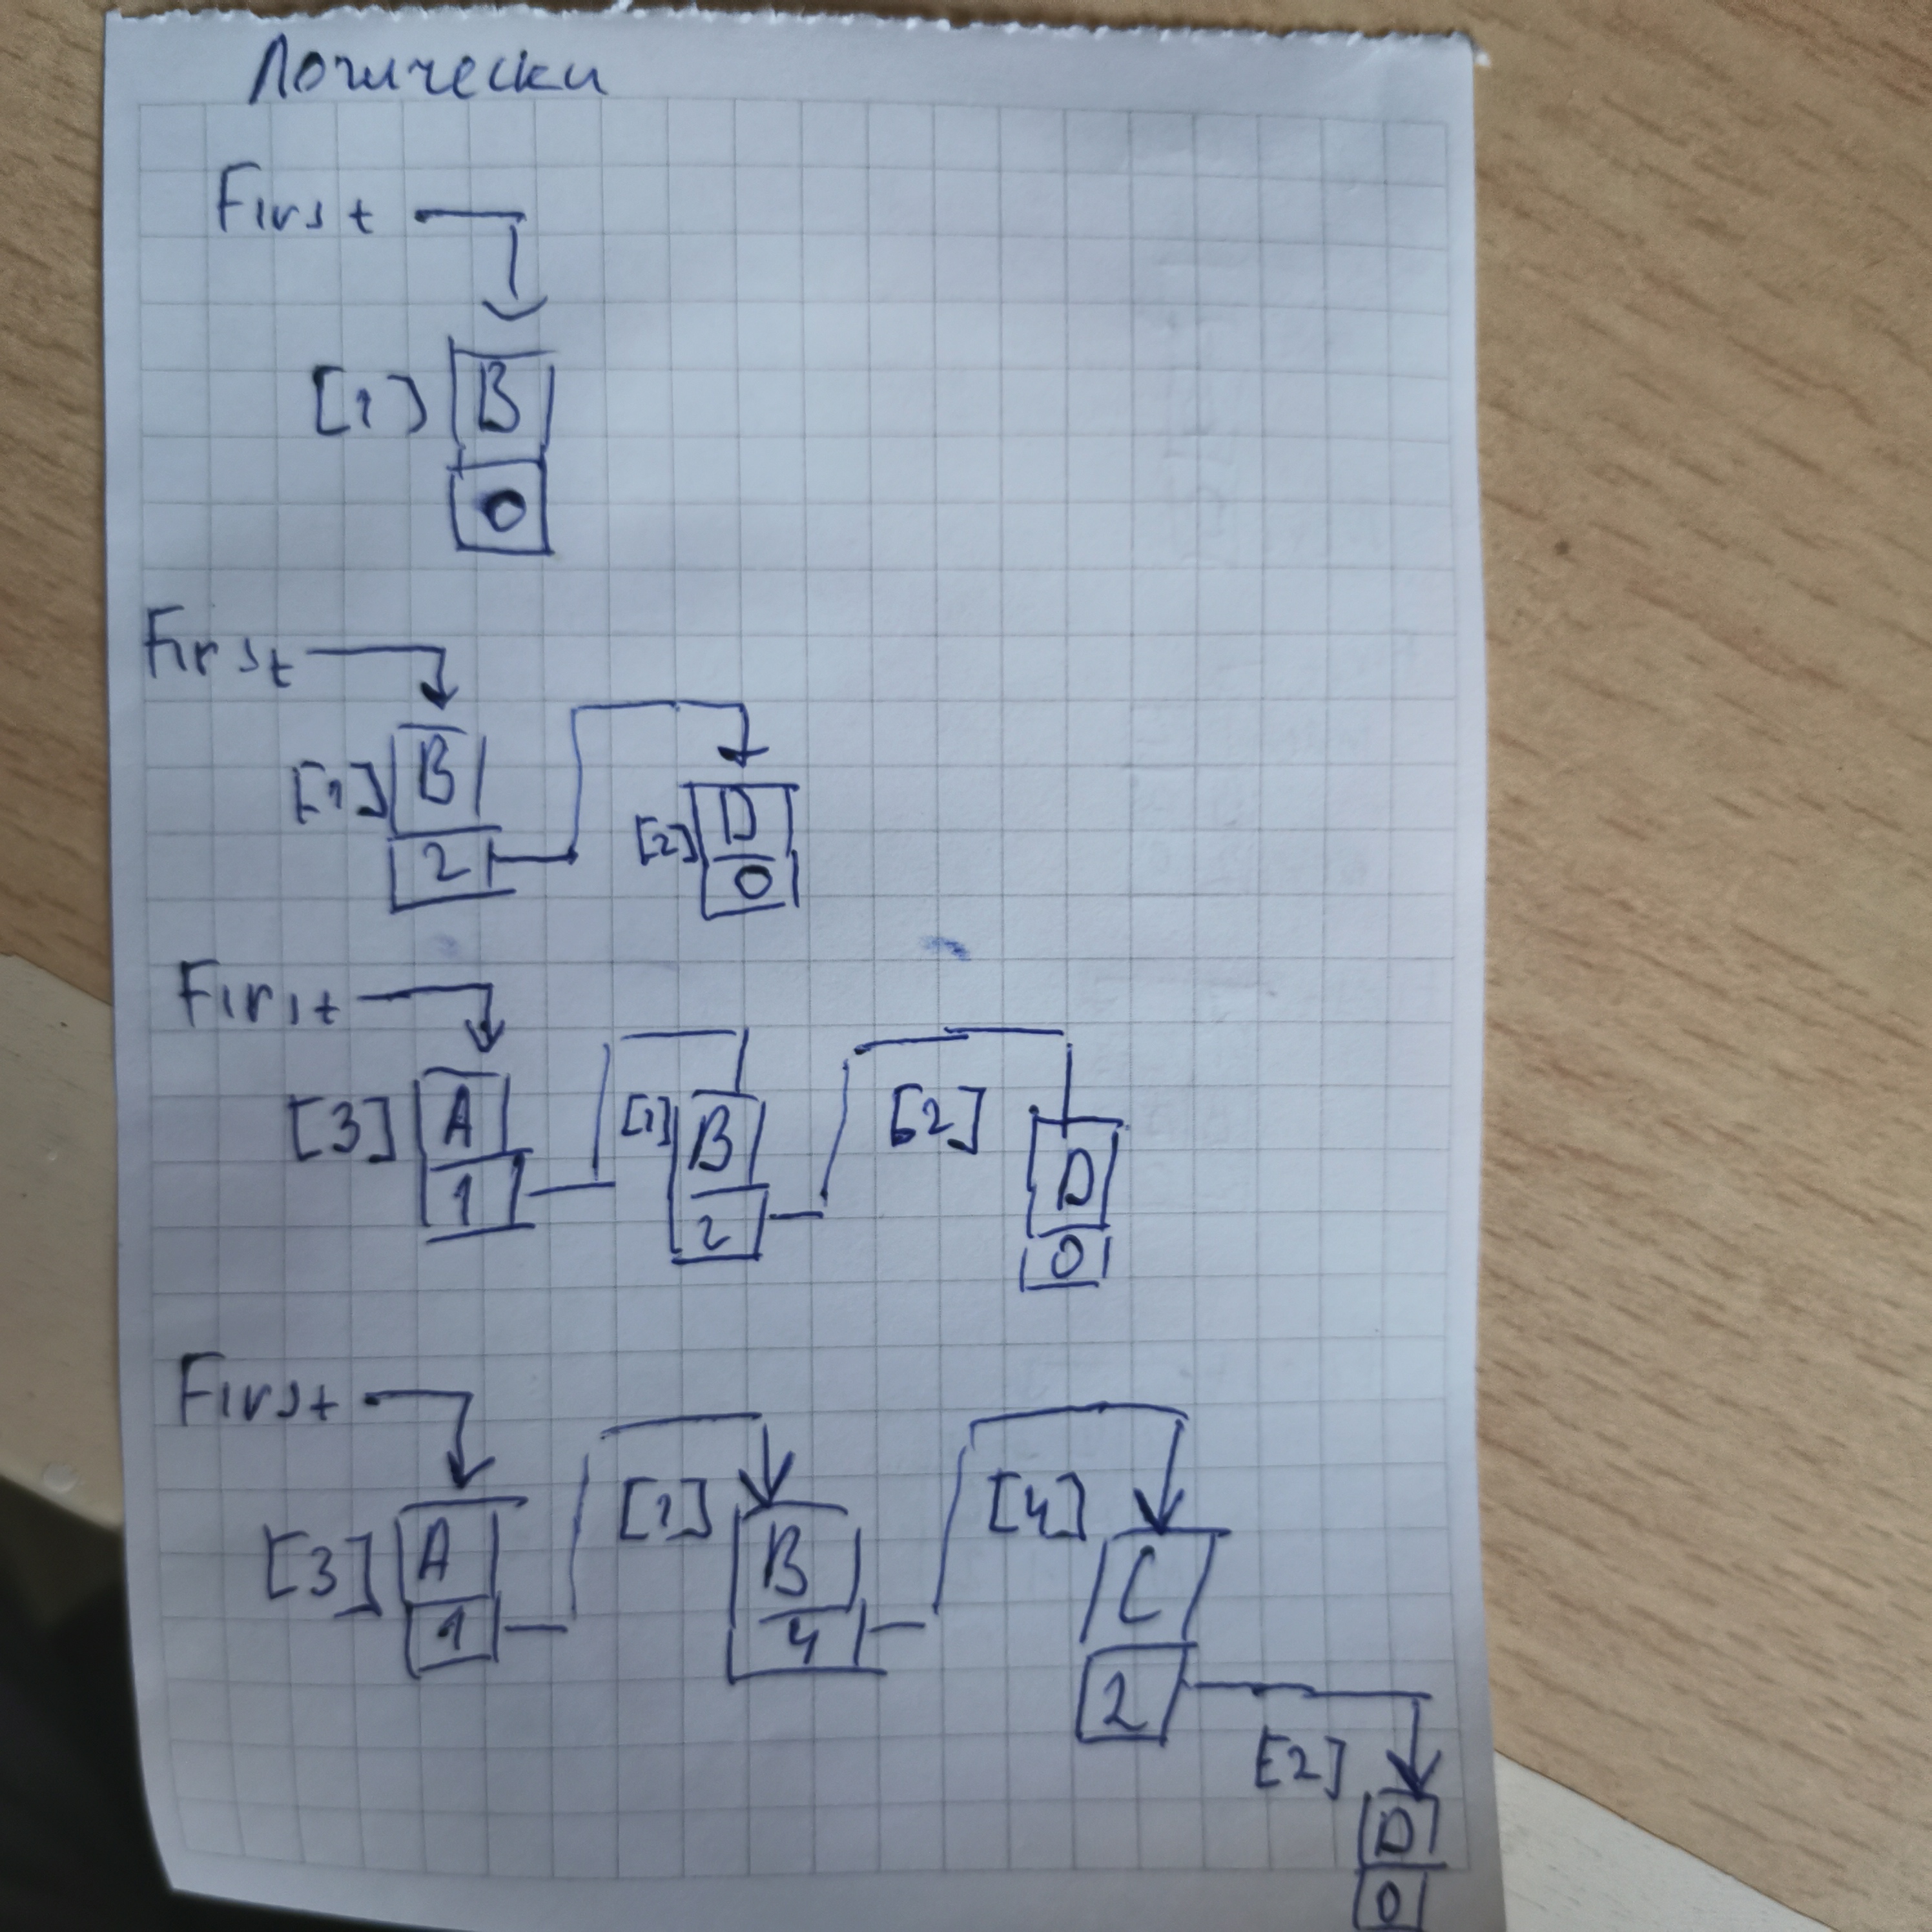 Логически
First
[1] B
0
First
[1] B
2
[2] D
0
First
[3] A [1] B [2] D
1 2 0
First
[3] A [1] B [4] C
1 4 2
[2] D
0